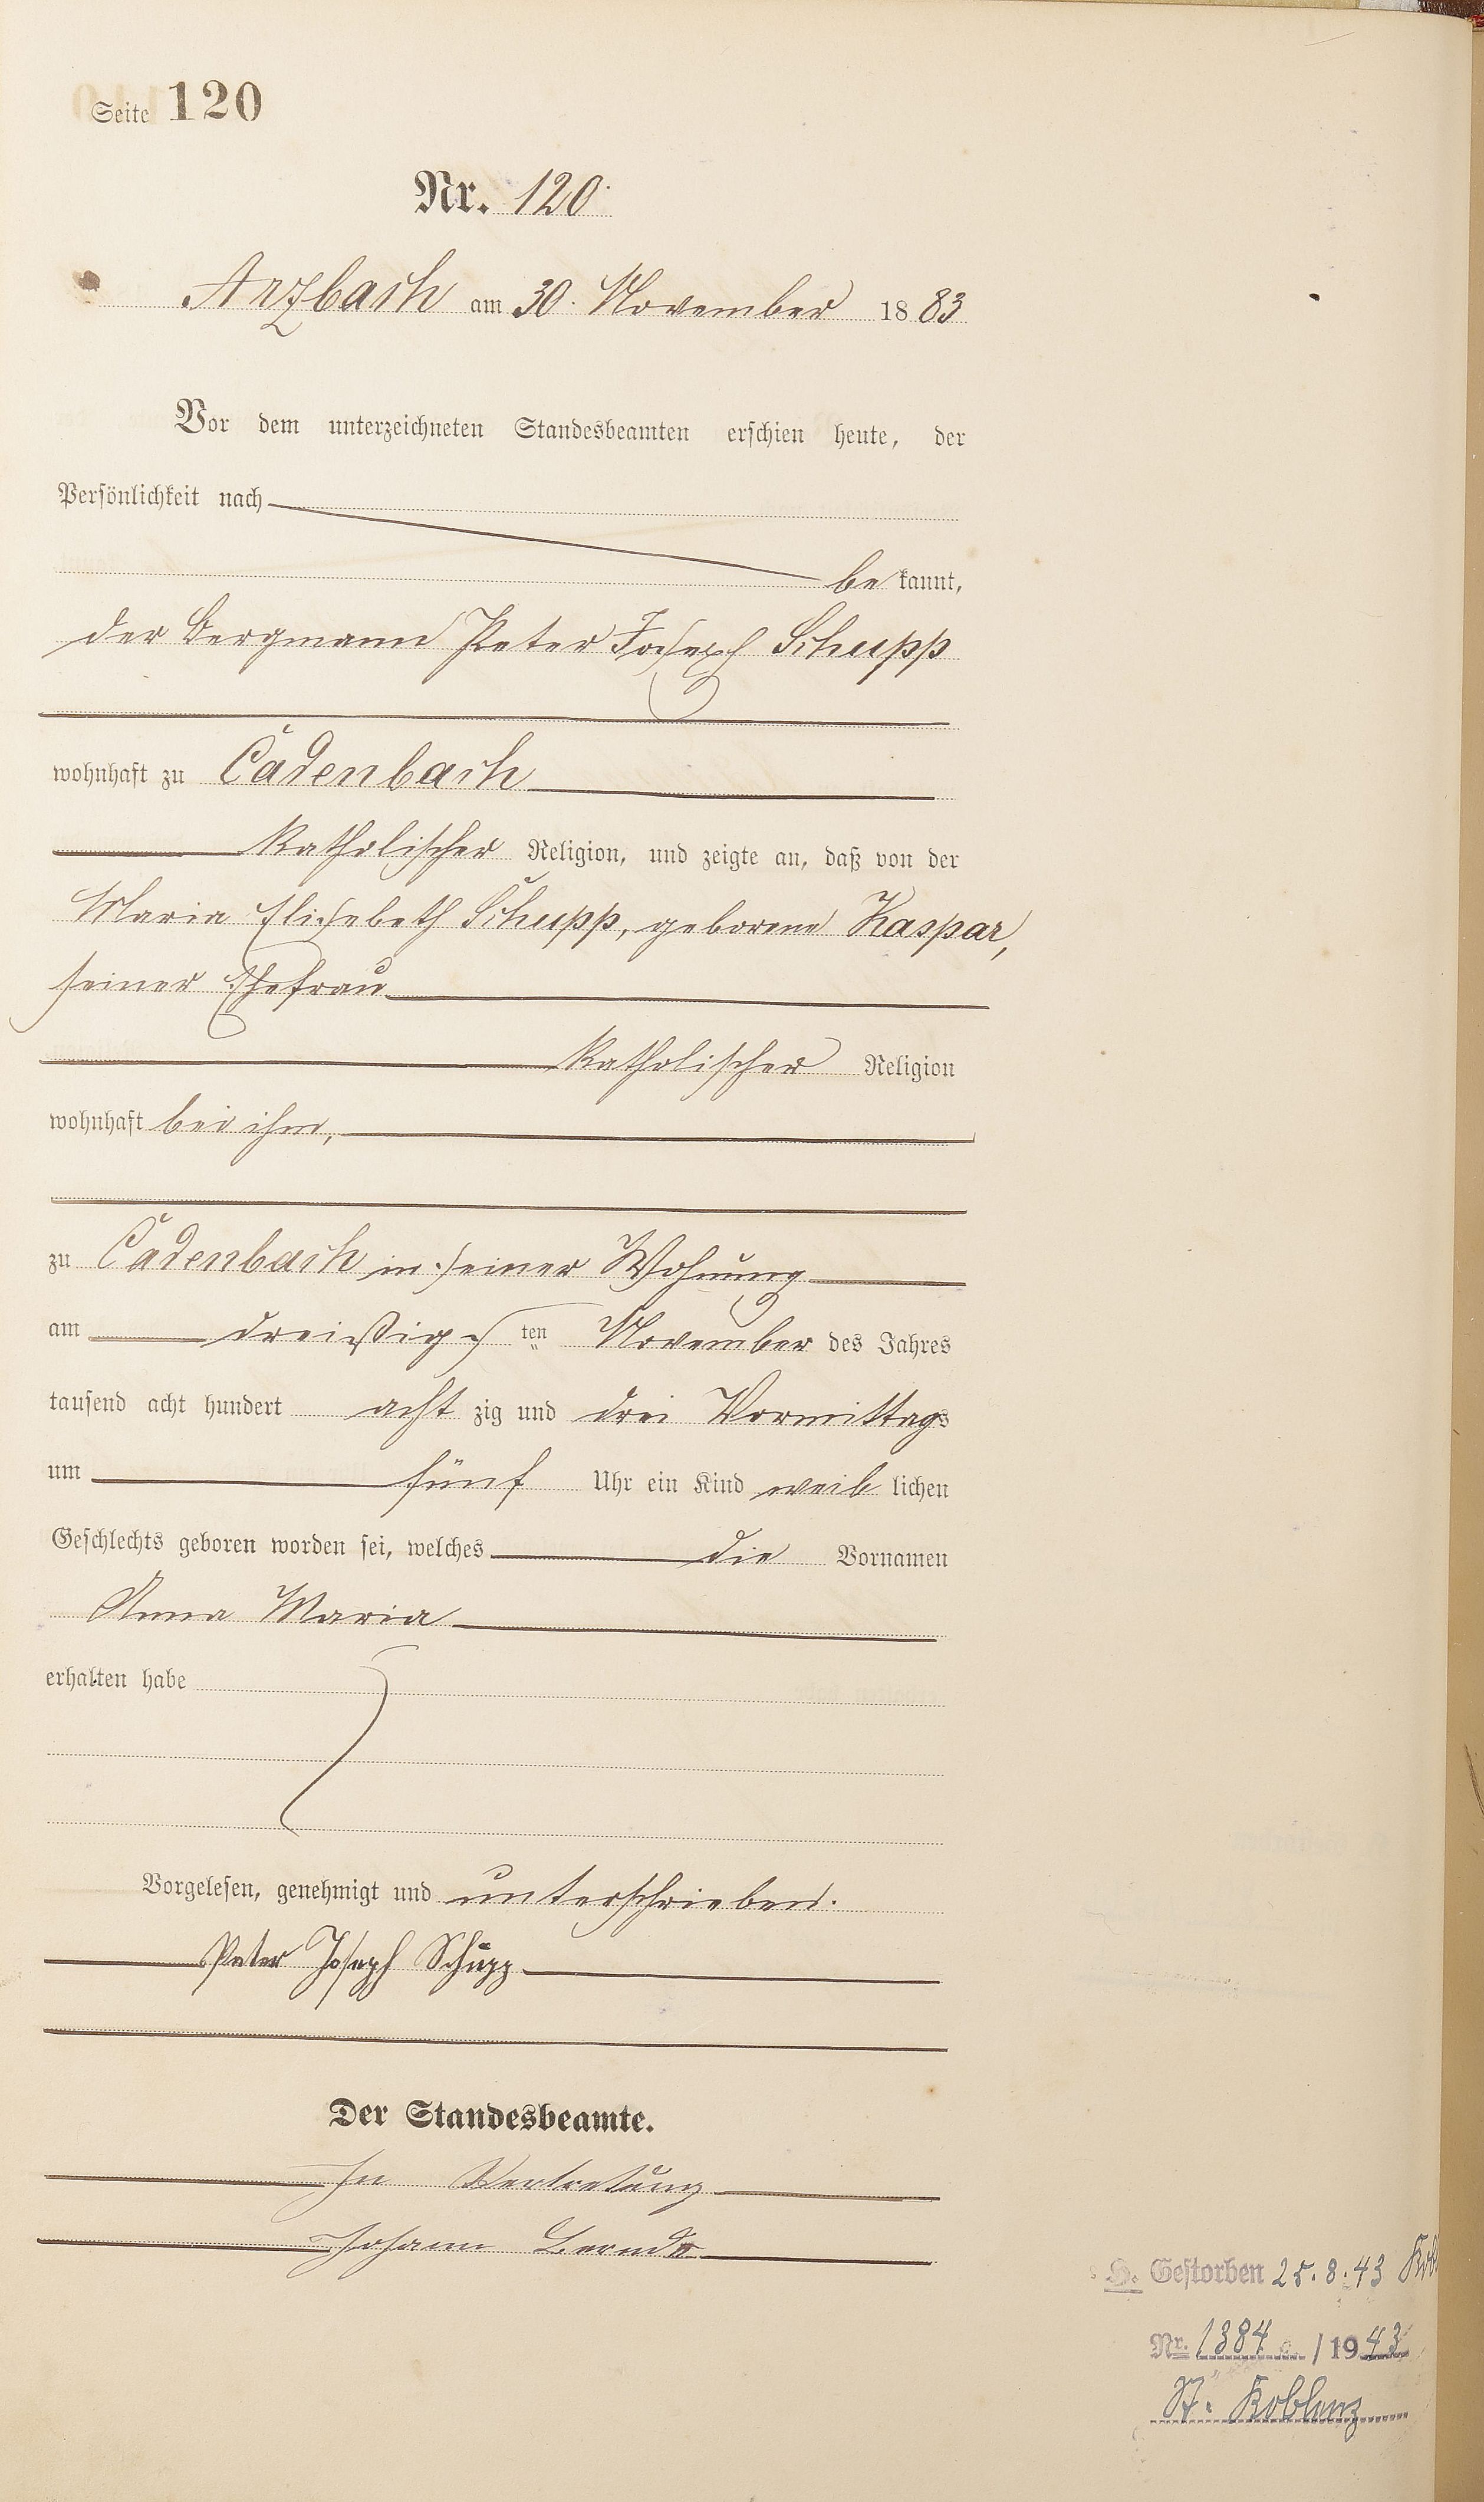 Seite 120
Nr. 120.
Arzbach am 30. November 1883
Vor dem unterzeichneten Standesbeamten erschien heute, der
Persönlichkeit nach
bekannt,
der Bergmann Peter Joseph Schupp
wohnhaft zu Cadenbach
katholischer Religion, und zeigte an, daß von der
Maria Elisebeth Schupp, geborene Kaspar,
seiner Ehefrau
katholischer Religion
wohnhaft bei ihm,
zu Cadenbach in seiner Wohnung
am dreißigsten November des Jahres
tausend acht hundert achtzig und drei Vormittags
um fünf Uhr ein Kind weiblichen
Geschlechts geboren worden sei, welches die Vornamen
Anna Maria
erhalten habe
Vorgelesen, genehmigt und unterschrieben.
Peter Joseph Schupp
Der Standesbeamte.
In Vertretung
Johann
H. Gestorben 25.8.43 Kob
Nr. 1384 /1943
St. Koblenz